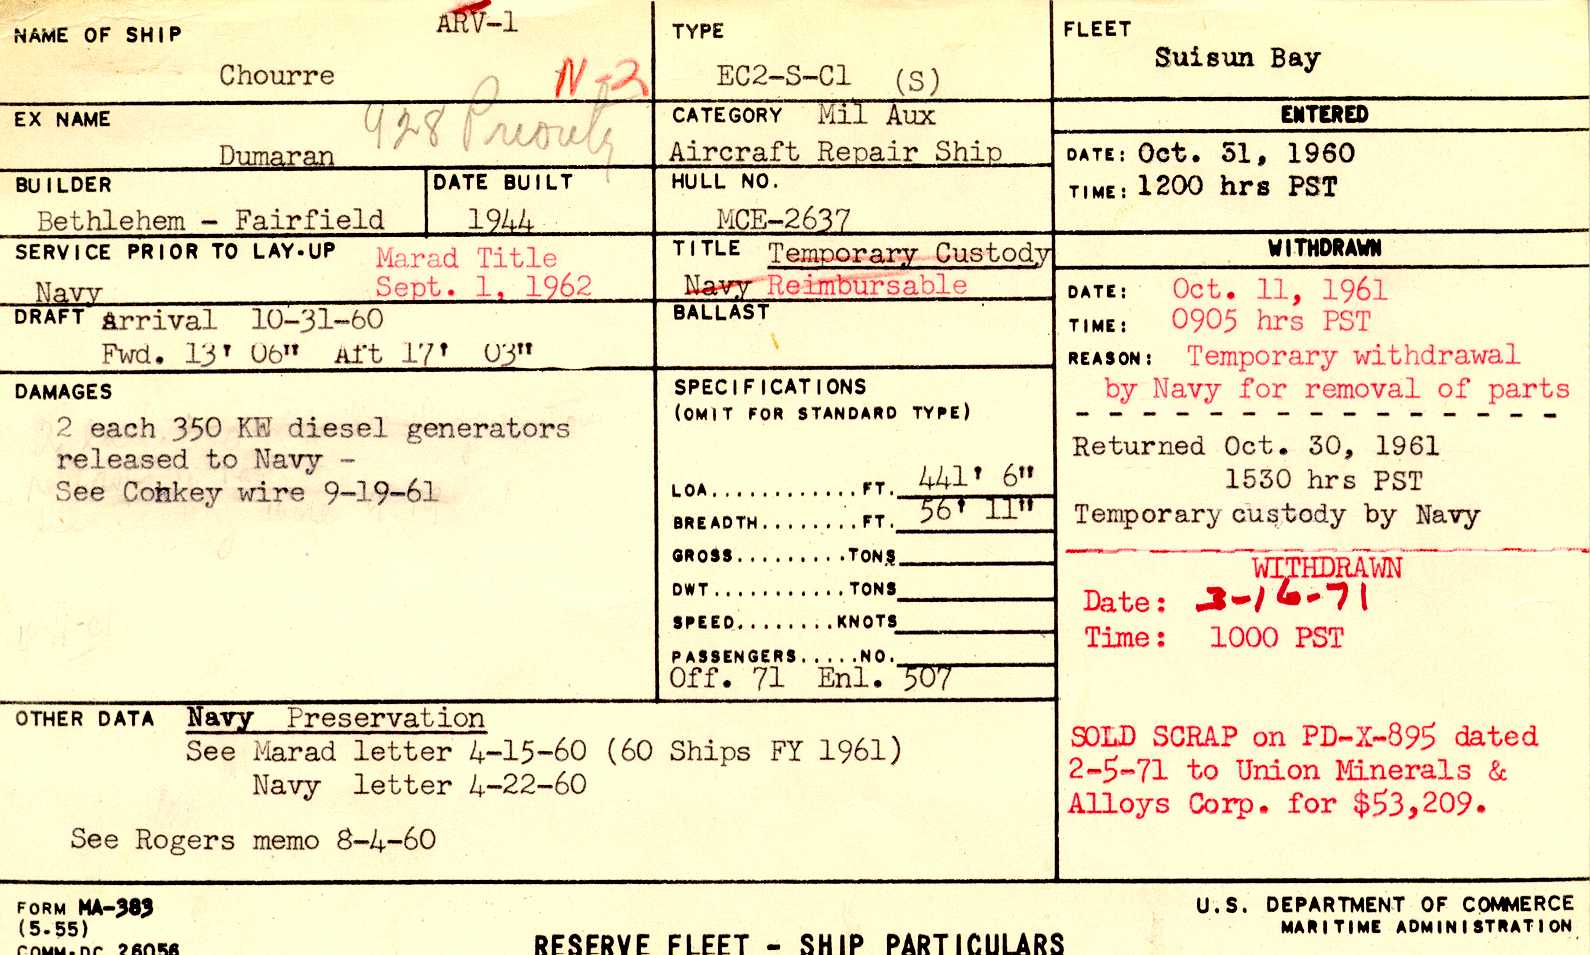 NAME OF SHIP
ARV-1
Chourre
N-2
EX NAME
928 Priority
Dumaran
BUILDER
Bethlehem - Fairfield
DATE BUILT
1944
SERVICE PRIOR TO LAY-UP
Marad Title
Sept. 1, 1962
Navy
DRAFT Arrival 10-31-60
Fwd. 13' 06" Aft 17' 03"
DAMAGES
2 each 350 KW diesel generators
released to Navy -
See Conkey wire 9-19-61
TYPE
EC2-S-C1 (S)
CATEGORY Mil Aux
Aircraft Repair Ship
HULL NO.
MCE-2637
TITLE Temporary Custody
Navy Reimbursable
BALLAST
SPECIFICATIONS
(OMIT FOR STANDARD TYPE)
LOA............FT. 441' 6"
BREADTH........FT. 56' 11"
GROSS..........TONS
DWT............TONS
SPEED........KNOTS
PASSENGERS.....NO.
Off. 71 Enl. 507
FLEET
Suisun Bay
ENTERED
DATE: Oct. 31, 1960
TIME: 1200 hrs PST
WITHDRAWN
DATE: Oct. 11, 1961
TIME: 0905 hrs PST
REASON: Temporary withdrawal
by Navy for removal of parts
Returned Oct. 30, 1961
1530 hrs PST
Temporary custody by Navy
WITHDRAWN
Date: 3-16-71
Time: 1000 PST
SOLD SCRAP on PD-X-895 dated
2-5-71 to Union Minerals &
Alloys Corp. for $53,209.
OTHER DATA Navy Preservation
See Marad letter 4-15-60 (60 Ships FY 1961)
Navy letter 4-22-60
See Rogers memo 8-4-60
FORM MA-383
(5-55)
COMM-DC 26056
RESERVE FLEET - SHIP PARTICULARS
U.S. DEPARTMENT OF COMMERCE
MARITIME ADMINISTRATION